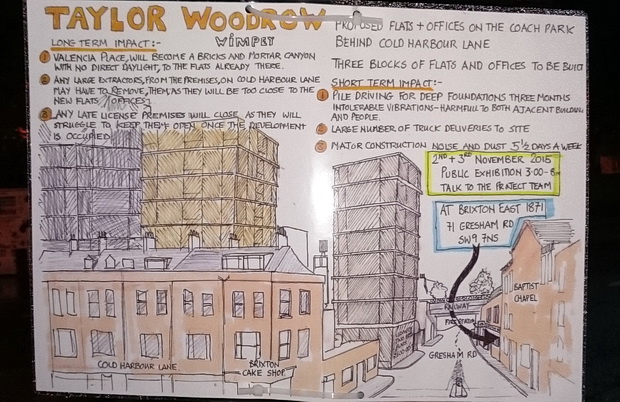 TAYLOR WOODROW
WIMPEY
LONG TERM IMPACT:-
① VALENCIA PLACE, WILL BECOME A BRICKS AND MORTAR CANYON
WITH NO DIRECT DAYLIGHT, TO THE FLATS ALREADY THERE.
② ANY LARGE EXTRACTORS, FROM THE PREMISES, ON COLD HARBOUR LANE
MAY HAVE TO REMOVE THEM, AS THEY WILL BE TOO CLOSE TO THE
NEW FLATS/OFFICES.
③ ANY LATE LICENSE PREMISES WILL CLOSE, AS THEY WILL
STRUGGLE TO KEEP THEM OPEN ONCE THE DEVELOPMENT
IS OCCUPIED
PROPOSED FLATS + OFFICES ON THE COACH PARK
BEHIND COLD HARBOUR LANE
THREE BLOCKS OF FLATS AND OFFICES TO BE BUILT
SHORT TERM IMPACT:-
① PILE DRIVING FOR DEEP FOUNDATIONS THREE MONTHS
INTOLERABLE VIBRATIONS-HARMFUL TO BOTH ADJACENT BUILDING
AND PEOPLE.
② LARGE NUMBER OF TRUCK DELIVERIES TO SITE
③ MAJOR CONSTRUCTION NOISE AND DUST 5½ DAYS A WEEK
2ND + 3RD NOVEMBER 2015
PUBLIC EXHIBITION 3-00-8
TALK TO THE PROJECT TEAM
AT BRIXTON EAST 1871
71 GRESHAM RD
SW9 7NS
BAPTIST
CHAPEL
RAILWAY
GRESHAM RD
COLD HARBOUR LANE
BRIXTON
CAKE SHOP